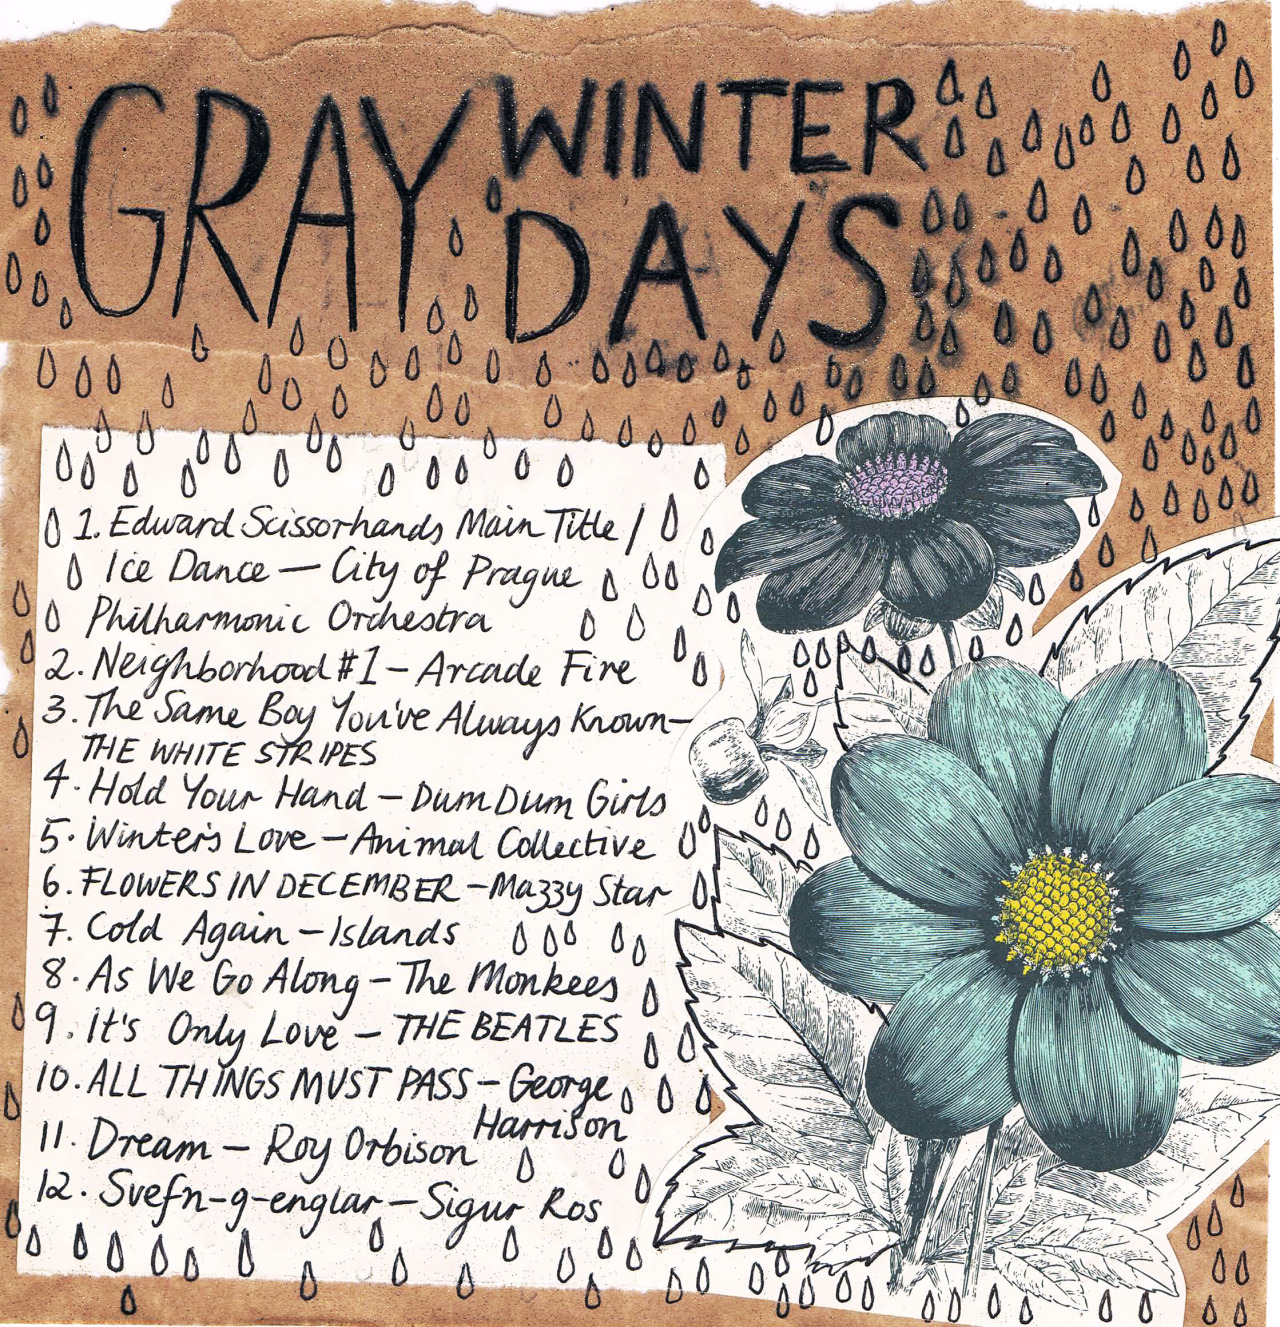 GRAY WINTER
DAYS
1. Edward Scissorhands Main Title /
Ice Dance — City of Prague
Philharmonic Orchestra
2. Neighborhood #1 — Arcade Fire
3. The Same Boy You've Always Known—
THE WHITE STRIPES
4. Hold Your Hand — Dum Dum Girls
5. Winter's Love — Animal Collective
6. FLOWERS IN DECEMBER — Mazzy Star
7. Cold Again — Islands
8. As We Go Along — The Monkees
9. It's Only Love — THE BEATLES
10. ALL THINGS MUST PASS — George
Harrison
11. Dream — Roy Orbison
12. Svefn-g-englar — Sigur Ros